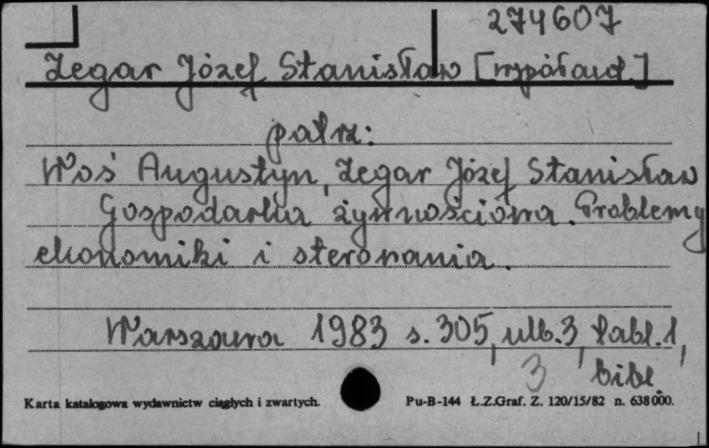 274607
Zegar Józef Stanisław [współaut.]
patrz:
Woś Augustyn, Zegar Józef Stanisław
Gospodarka żywnościowa. Problemy
ekonomiki i sterowania.
Warszawa 1983 s. 305, ulb. 3, tabl. 1,
3 bibl.
Karta katalogowa wydawnictw ciągłych i zwartych. Pu-B-144 Ł.Z.Graf. Z. 120/15/82 n. 638 000.